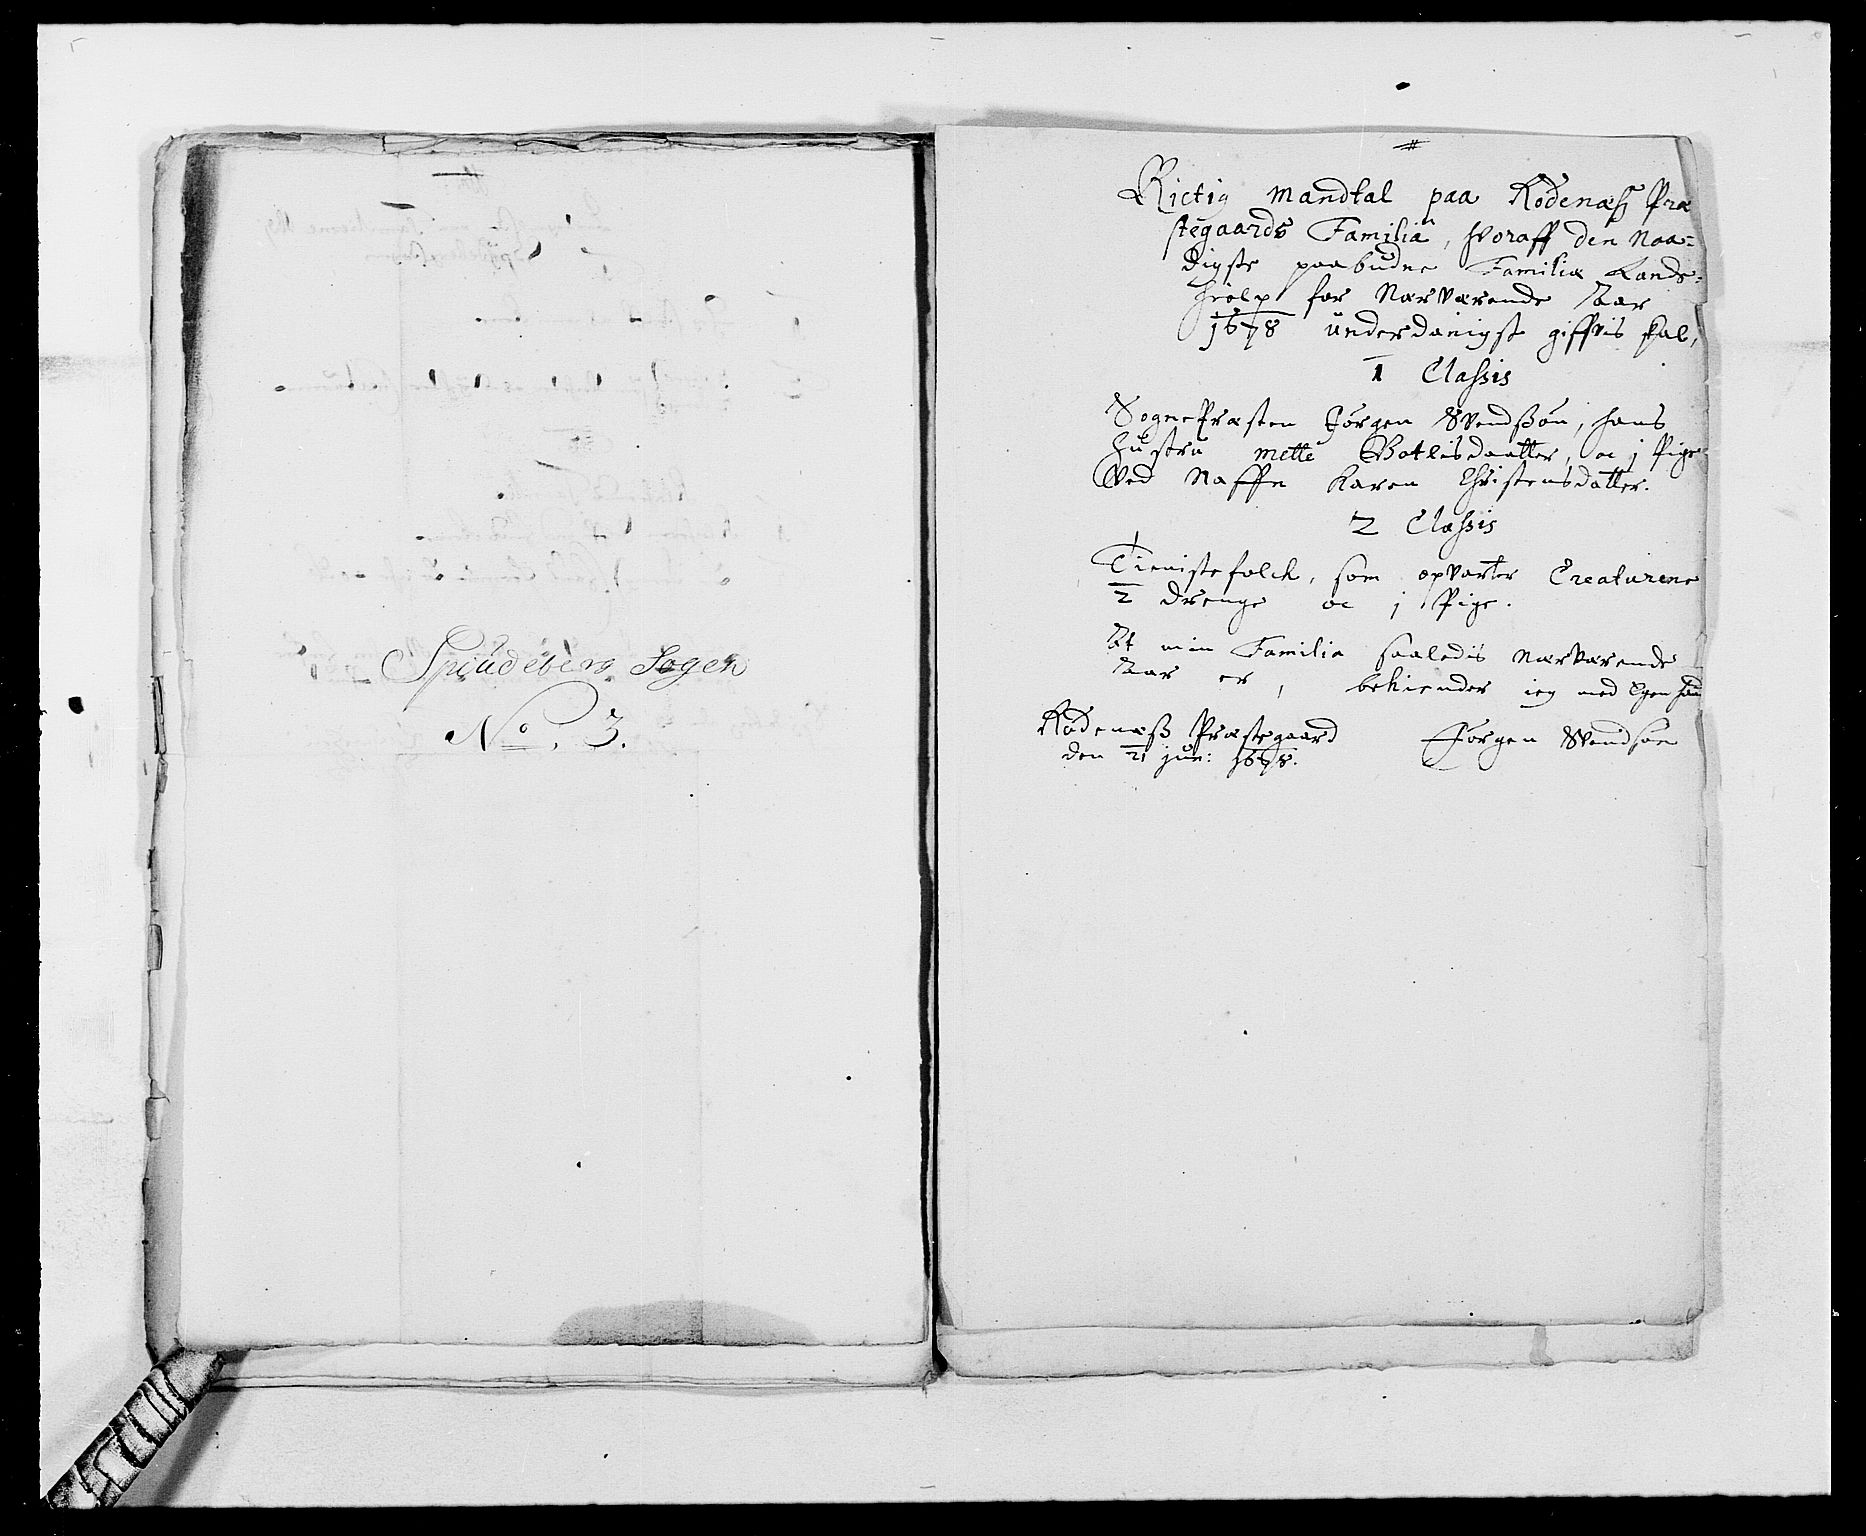 Spiudeberg Sogen
No. 3.
#
Rictig Mandtal paa Rødenæß Præ
stegaards Familia, hvoraff den Naa=
digste paabudne Familiæ Lands=
hielp for Nærværende Aar
1678 underdanigst giffvis skal,
1 Classis
SognePræsten Jørgen Svendßøn, hans
hustru Mette Botlisdaatter, oc j Pige
Ved Naffn Karen Christensdatter.
2 Classis
Tienistefolck, som opvarter Creaturene
2 drenge oc j Pige.
At min Familia saaledis Nærværende
Aar er, bekiender ieg med Egen haand
Rødenæß Præstegaard Jørgen Svendsøn
den 21 jun: 1678.